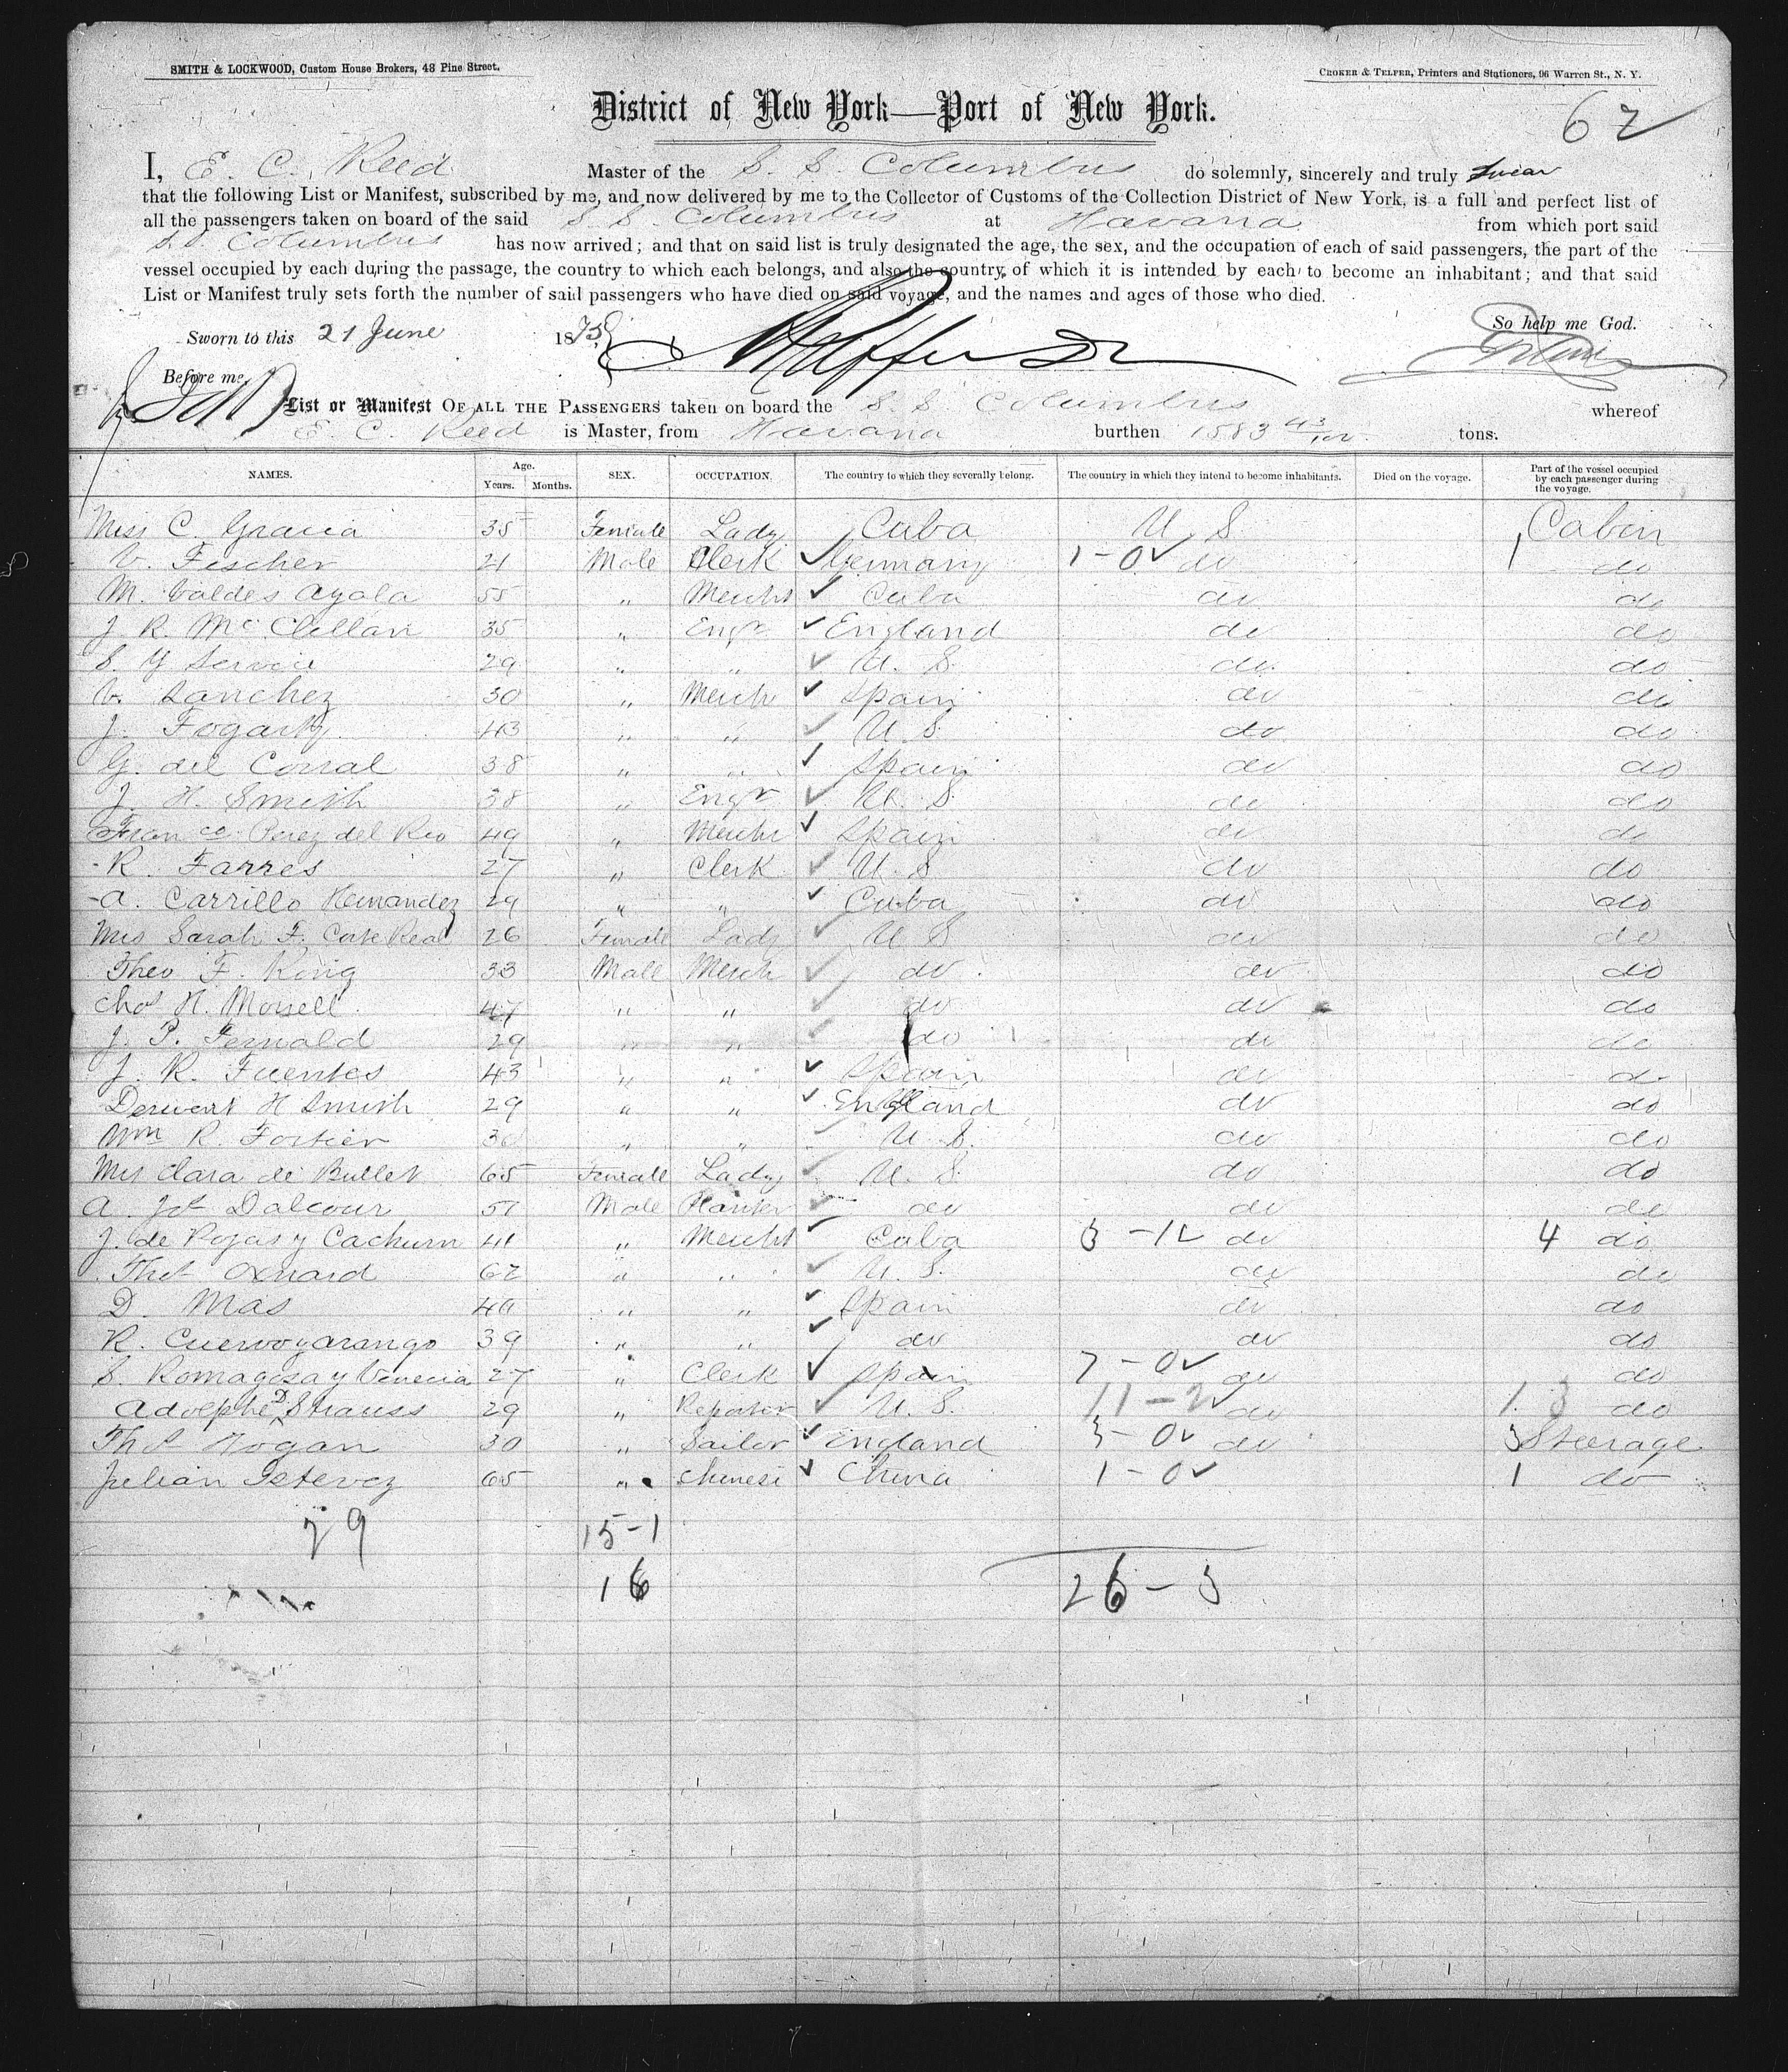 SMITH & LOCKWOOD, Custom House Brokers, 48 Pine Street. CROKER & TELFER, Printers and Stationers, 96 Warren St., N. Y.
District of New York—Port of New York.
62
I, E. C. Reed Master of the S. S. Columbus do solemnly, sincerely and truly swear
that the following List or Manifest, subscribed by me, and now delivered by me to the Collector of Customs of the Collection District of New York, is a full and perfect list of
all the passengers taken on board of the said S. S. Columbus at Havana from which port said
S.S. Columbus has now arrived; and that on said list is truly designated the age, the sex, and the occupation of each of said passengers, the part of the
vessel occupied by each during the passage, the country to which each belongs, and also the country of which it is intended by each to become an inhabitant; and that said
List or Manifest truly sets forth the number of said passengers who have died on said voyage, and the names and ages of those who died.
Sworn to this 21 June 1875 So help me God.
Before me,
List or Manifest OF ALL THE PASSENGERS taken on board the S S Columbus whereof
E. C. Reed is Master, from Havana burthen 1583 43/100 tons.
NAMES. Age. Years. Months. SEX. OCCUPATION. The country to which they severally belong. The country in which they intend to become inhabitants. Died on the voyage. Part of the vessel occupied by each passenger during the voyage.
Miss C. Gracia 35 Female Lady Cuba U S 1 Cabin
V. Fischer 21 Male Clerk Germany 1-0 do do
M. Valdes Ayala 55 " Mercht Cuba do do
J. R. McClellan 35 " Engr England do do
S. Y Service 29 " " U. S. do do
V. Sanchez 30 " Merch Spain do do
J. Fogarty 43 " " U. S. do do
G. del Corral 38 " " Spain do do
J. H. Smith 38 " Engr U. S. do do
Franco Perez del Rio 49 " Mercht Spain do do
R. Farres 27 " Clerk U. S do do
A. Carrillo Hernandez 29 " " Cuba do do
Mrs Sarah F. Corte Real 26 Female Lady U S do do
Theo F. König 33 Male Merch do do do
Chas H. Morsell 47 " " do do do
J. P. Fernald 29 " " do do do
J. R. Fuentes 43 " " Spain do do
Derwent H Smith 29 " " England do do
Wm R. Fortier 30 " " U. S. do do
Mrs Clara de Bullet 65 Female Lady U. S. do do
A. Jos Dalcour 51 Male Planter do do do
J. de Rojas y Cachurn 41 " Mercht Cuba 3-12 do 4 do
Thos Oxnard 62 " " U. S. do do
D. Mas 40 " " Spain do do
R. Cuervo y Arango 39 " " do do do
S. Romagosa y Venecia 27 " Clerk Spain 7-0 do do
Adolphe D Strauss 29 " Reporter U. S. 11-2 do 1. 3 do
Thos Hogan 30 " Sailor England 3-0 do 3 Steerage
Julian Estevez 65 " Chinese China 1-0 1 do
29 15-1
16 26-3